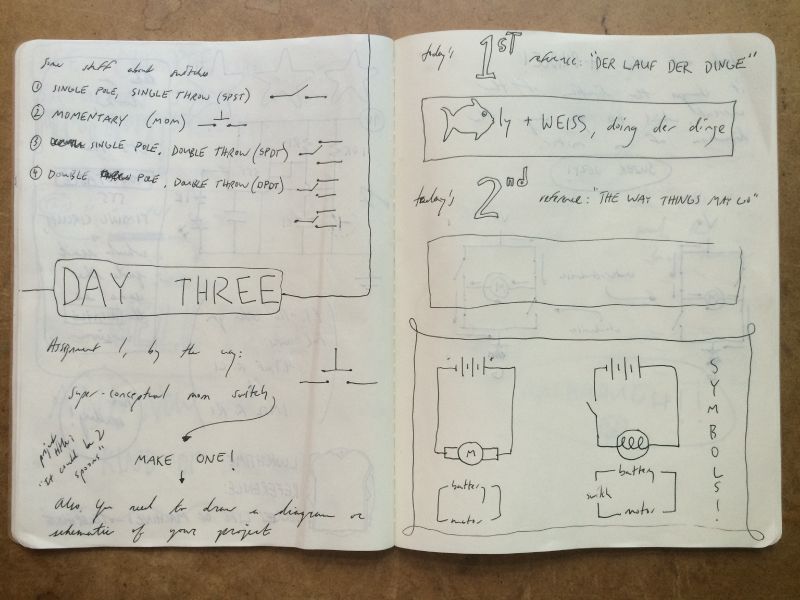 Some stuff about switches
① SINGLE POLE, SINGLE THROW (SPST)
② MOMENTARY (MOM)
③ SINGLE POLE, DOUBLE THROW (SPDT)
④ DOUBLE POLE, DOUBLE THROW (DPDT)
DAY THREE
Assignment 1, by the way:
Super-conceptual mom switch
MAKE ONE!
"it could be 2
spoons"
Also. You need to draw a diagram or
schematic of your project
today's 1ST reference: "DER LAUF DER DINGE"
ly + WEISS, doing der dinge
today's 2nd reference: "THE WAY THINGS MAY GO"
SYMBOLS!
M
battery
motor
battery
switch
motor